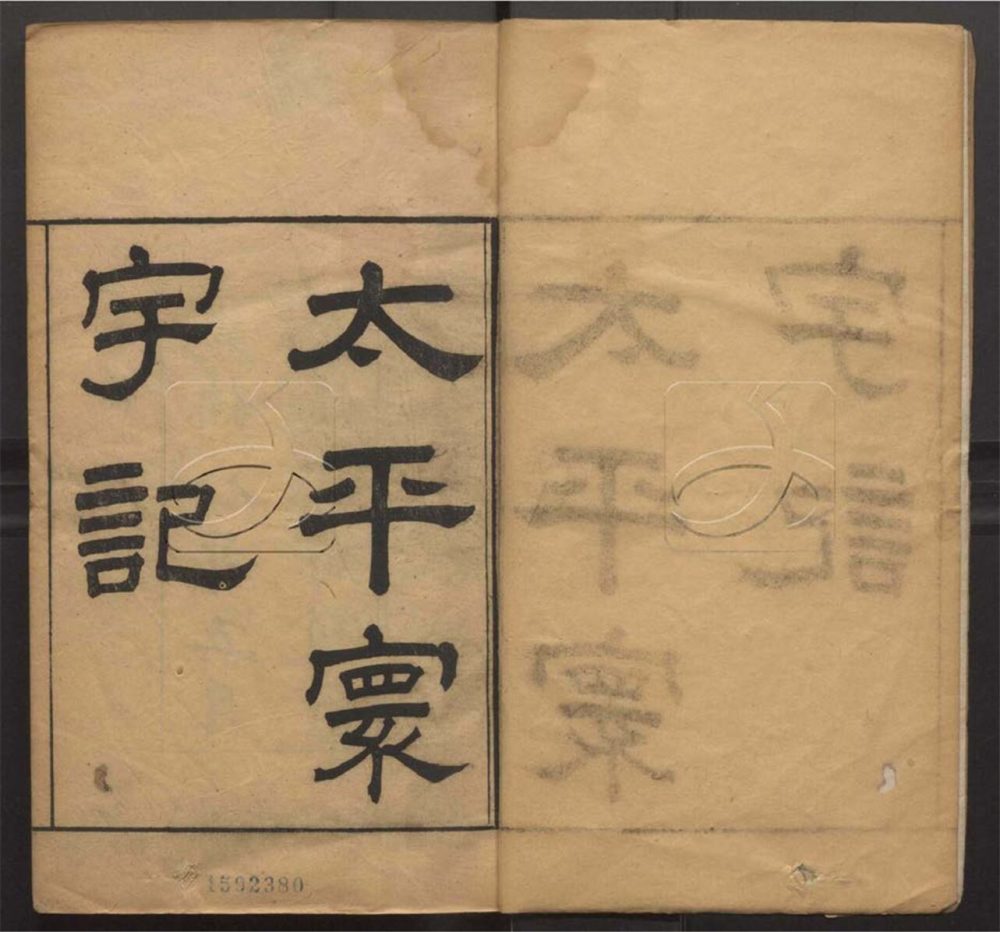 太平寰
宇記
1592380